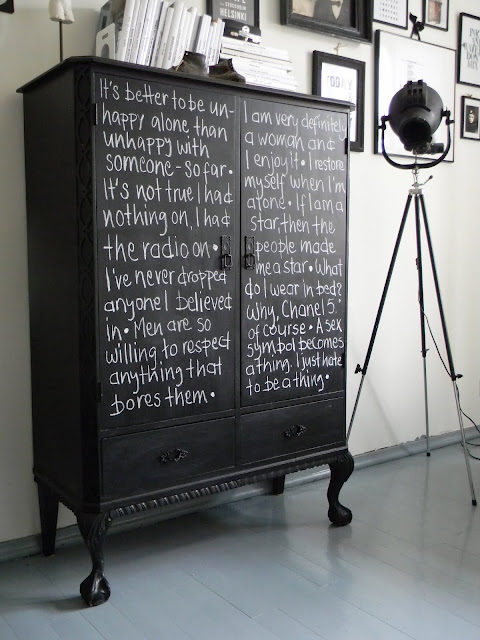 It's better to be un-
happy alone than
unhappy with
someone - so far •
It's not true I had
nothing on, I had
the radio on •
I've never dropped
anyone I believed
in • Men are so
willing to respect
anything that
bores them •
I am very definitely
a woman and
I enjoy it • I restore
myself when I'm
alone • If I am a
star, then the
people made
me a star • What
do I wear in bed?
Why, Chanel 5
of course • A sex
symbol becomes
a thing. I just hate
to be a thing •
HELSINKI
TODAY